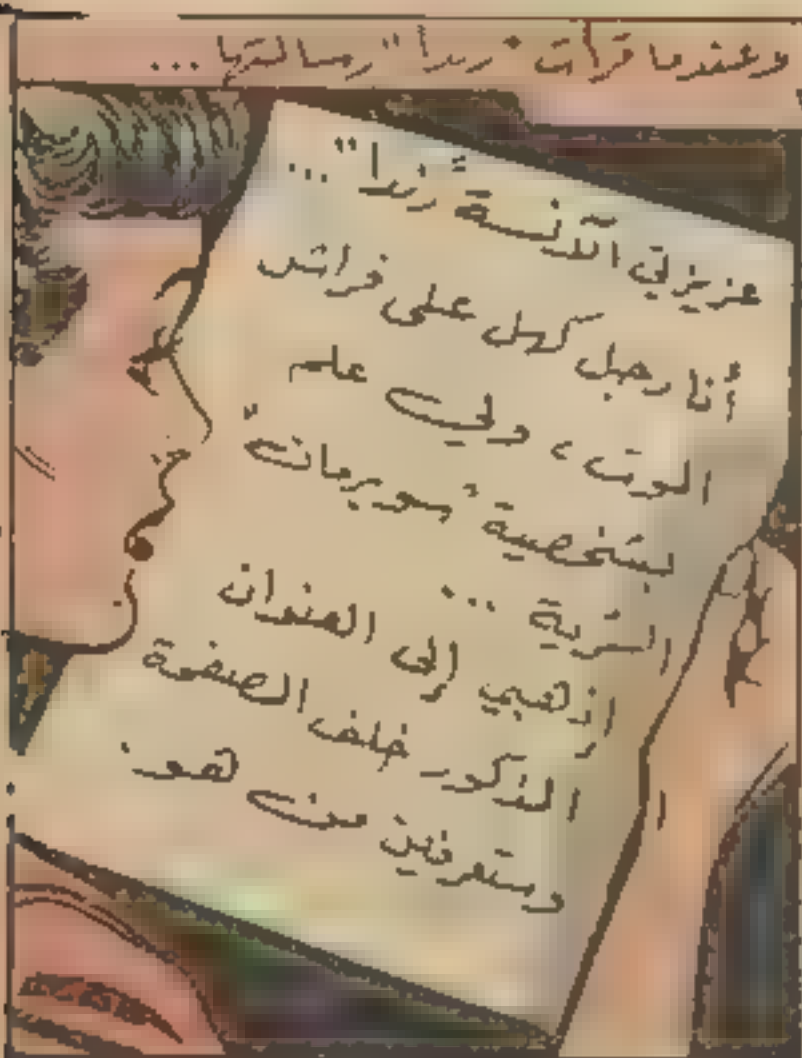 وعندما قرأت "رندا" رسالتها ...
عزيزتي الآنسة "رندا" ...
أنا رجل كهل على فراش
الموت ، ولي علم
بشخصية "سوبرمان"
السرية ...
اذهبي إلى العنوان
المذكور خلف الصفحة
وستعرفين من هو.